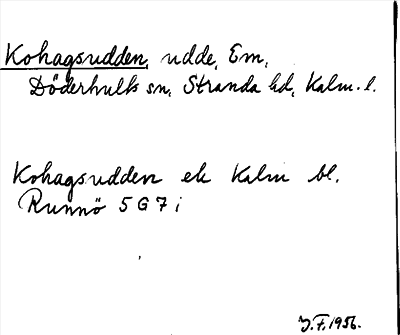 Kohagsudden, udde, Em,
Döderhults sn, Stranda hd, Kalm. l.
Kohagsudden ek Kalm bl.
Runnö 5 G 7 i
J.F. 1956.